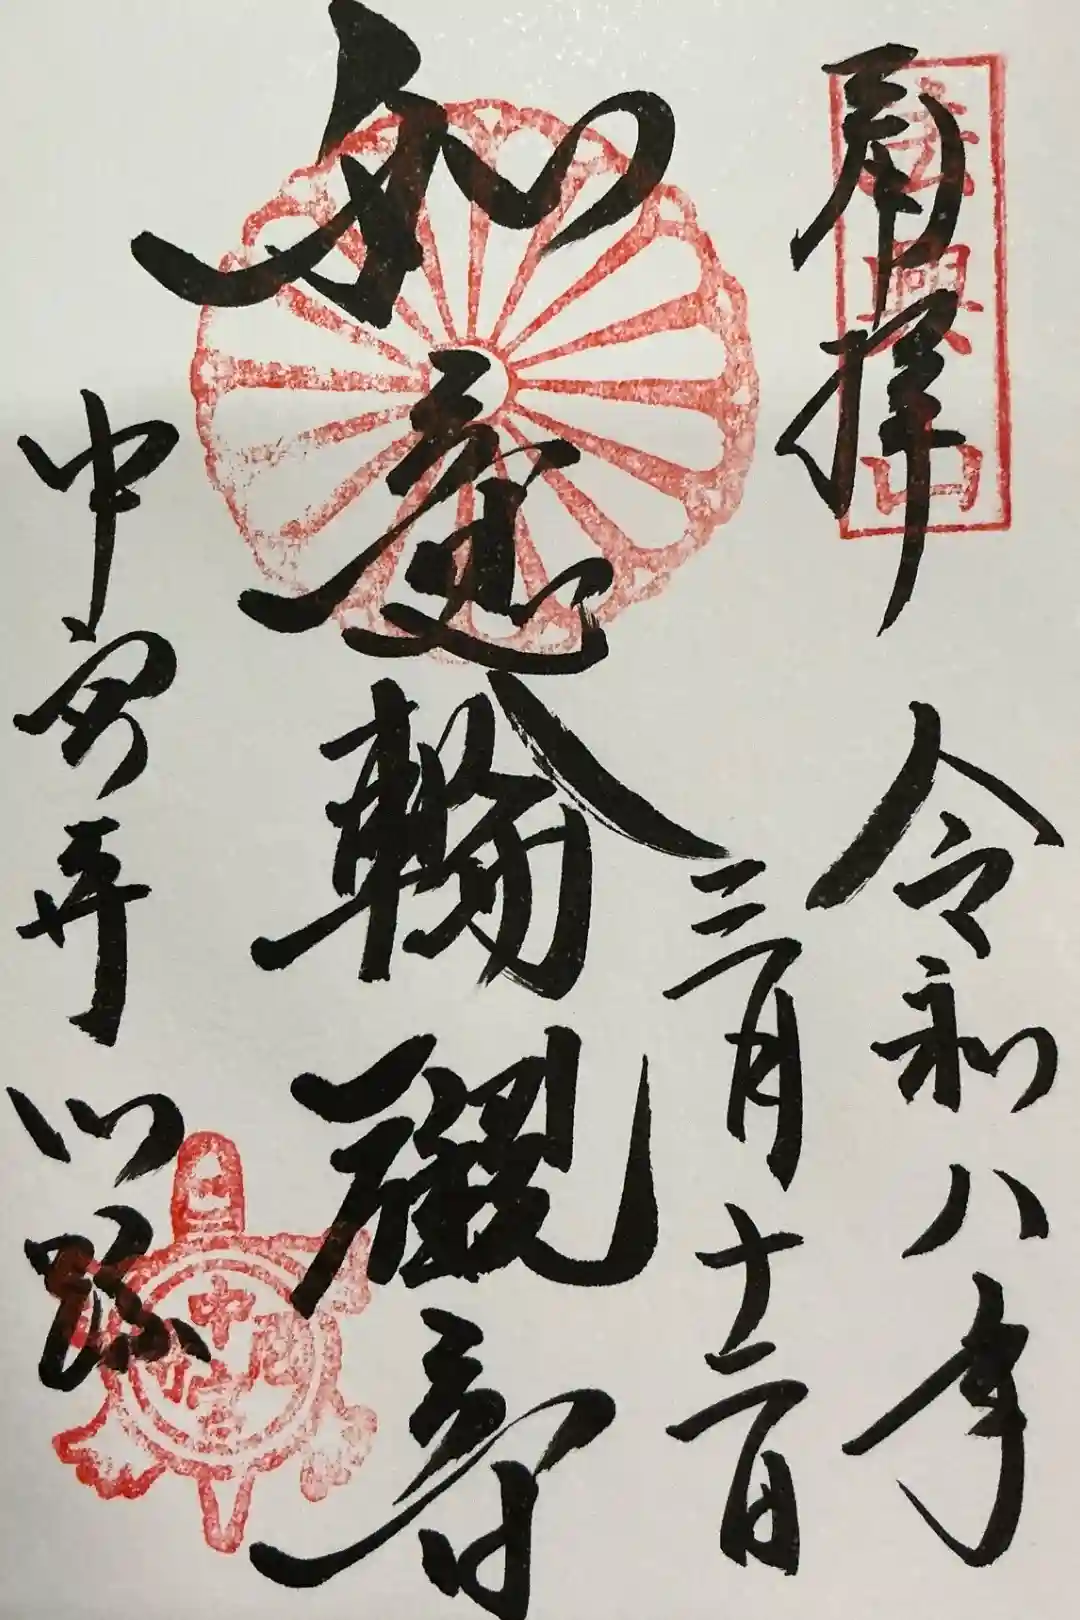 奉拝
法興山
令和八年
三月十二日
如意輪觀音
中宮寺門跡